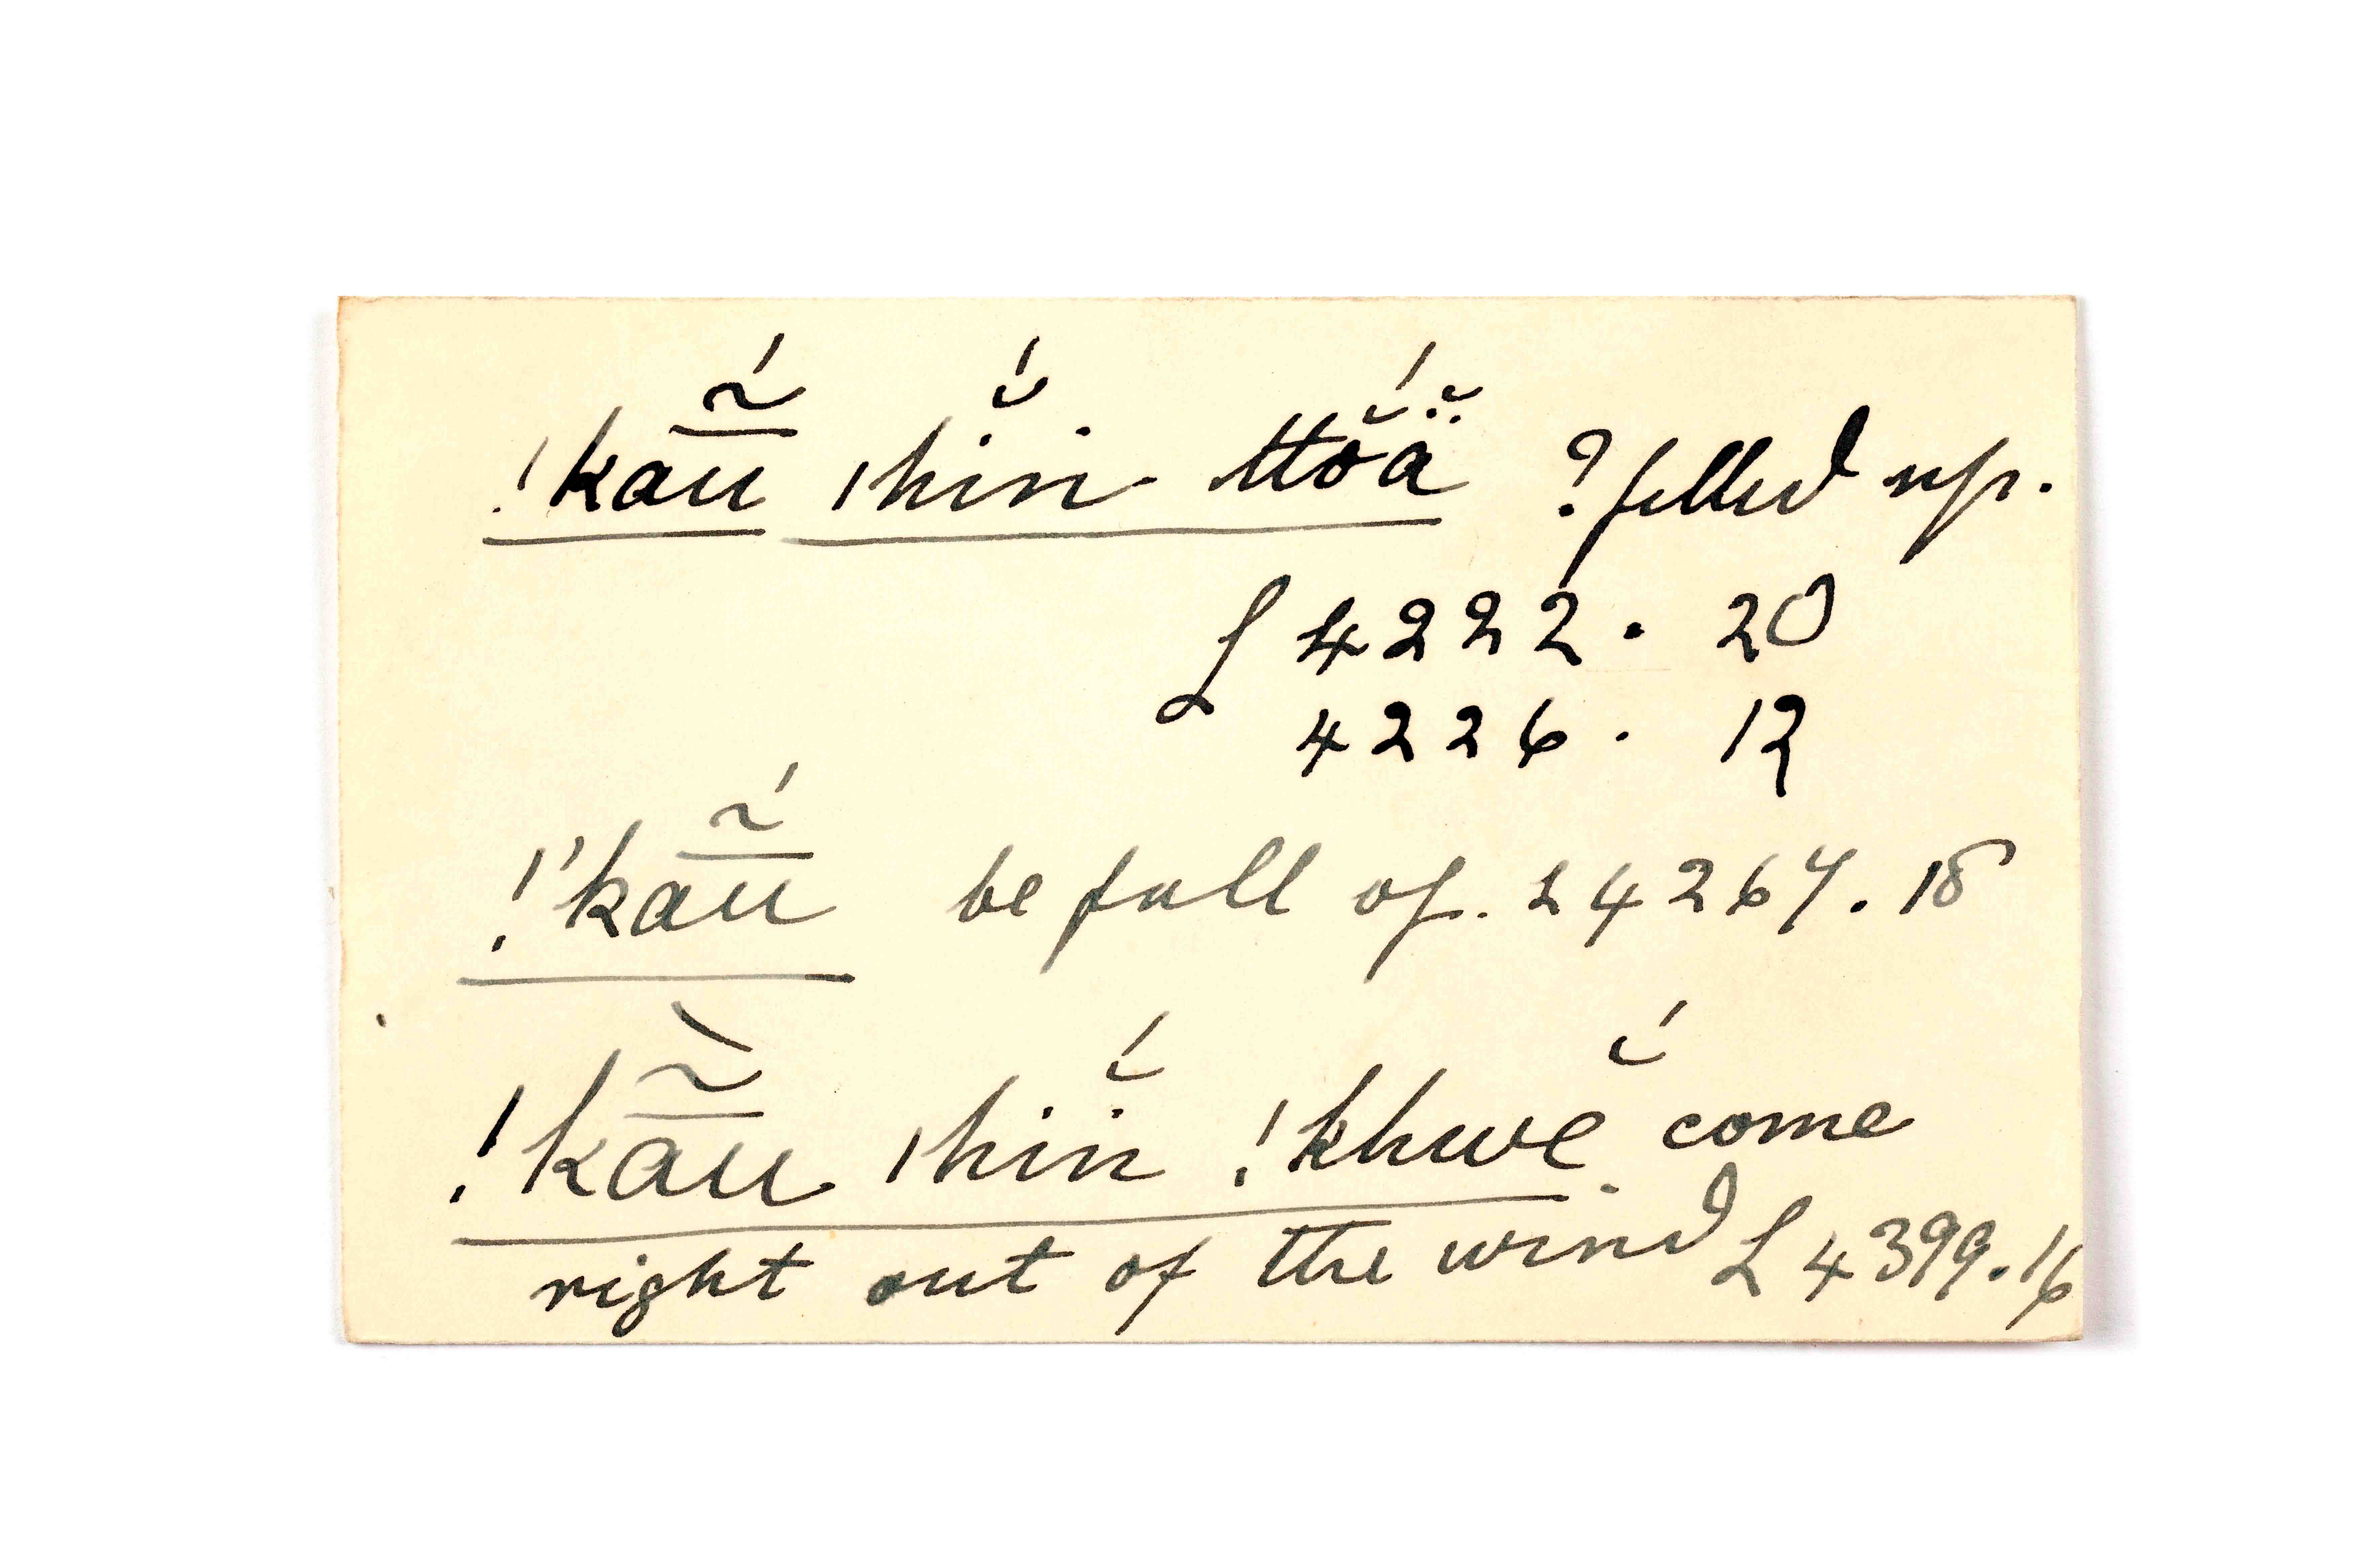 !kau̅̃́ |hĭ́ṅ ttŏ́ä̆ ? filled up.
L 4222. 20
4226. 12
!'kau̅̃́ be full of. L 4267. 18
!kau̅̃̀ |hiṅ̆́ !khwĕ́ come
right out of the wind L 4399.16